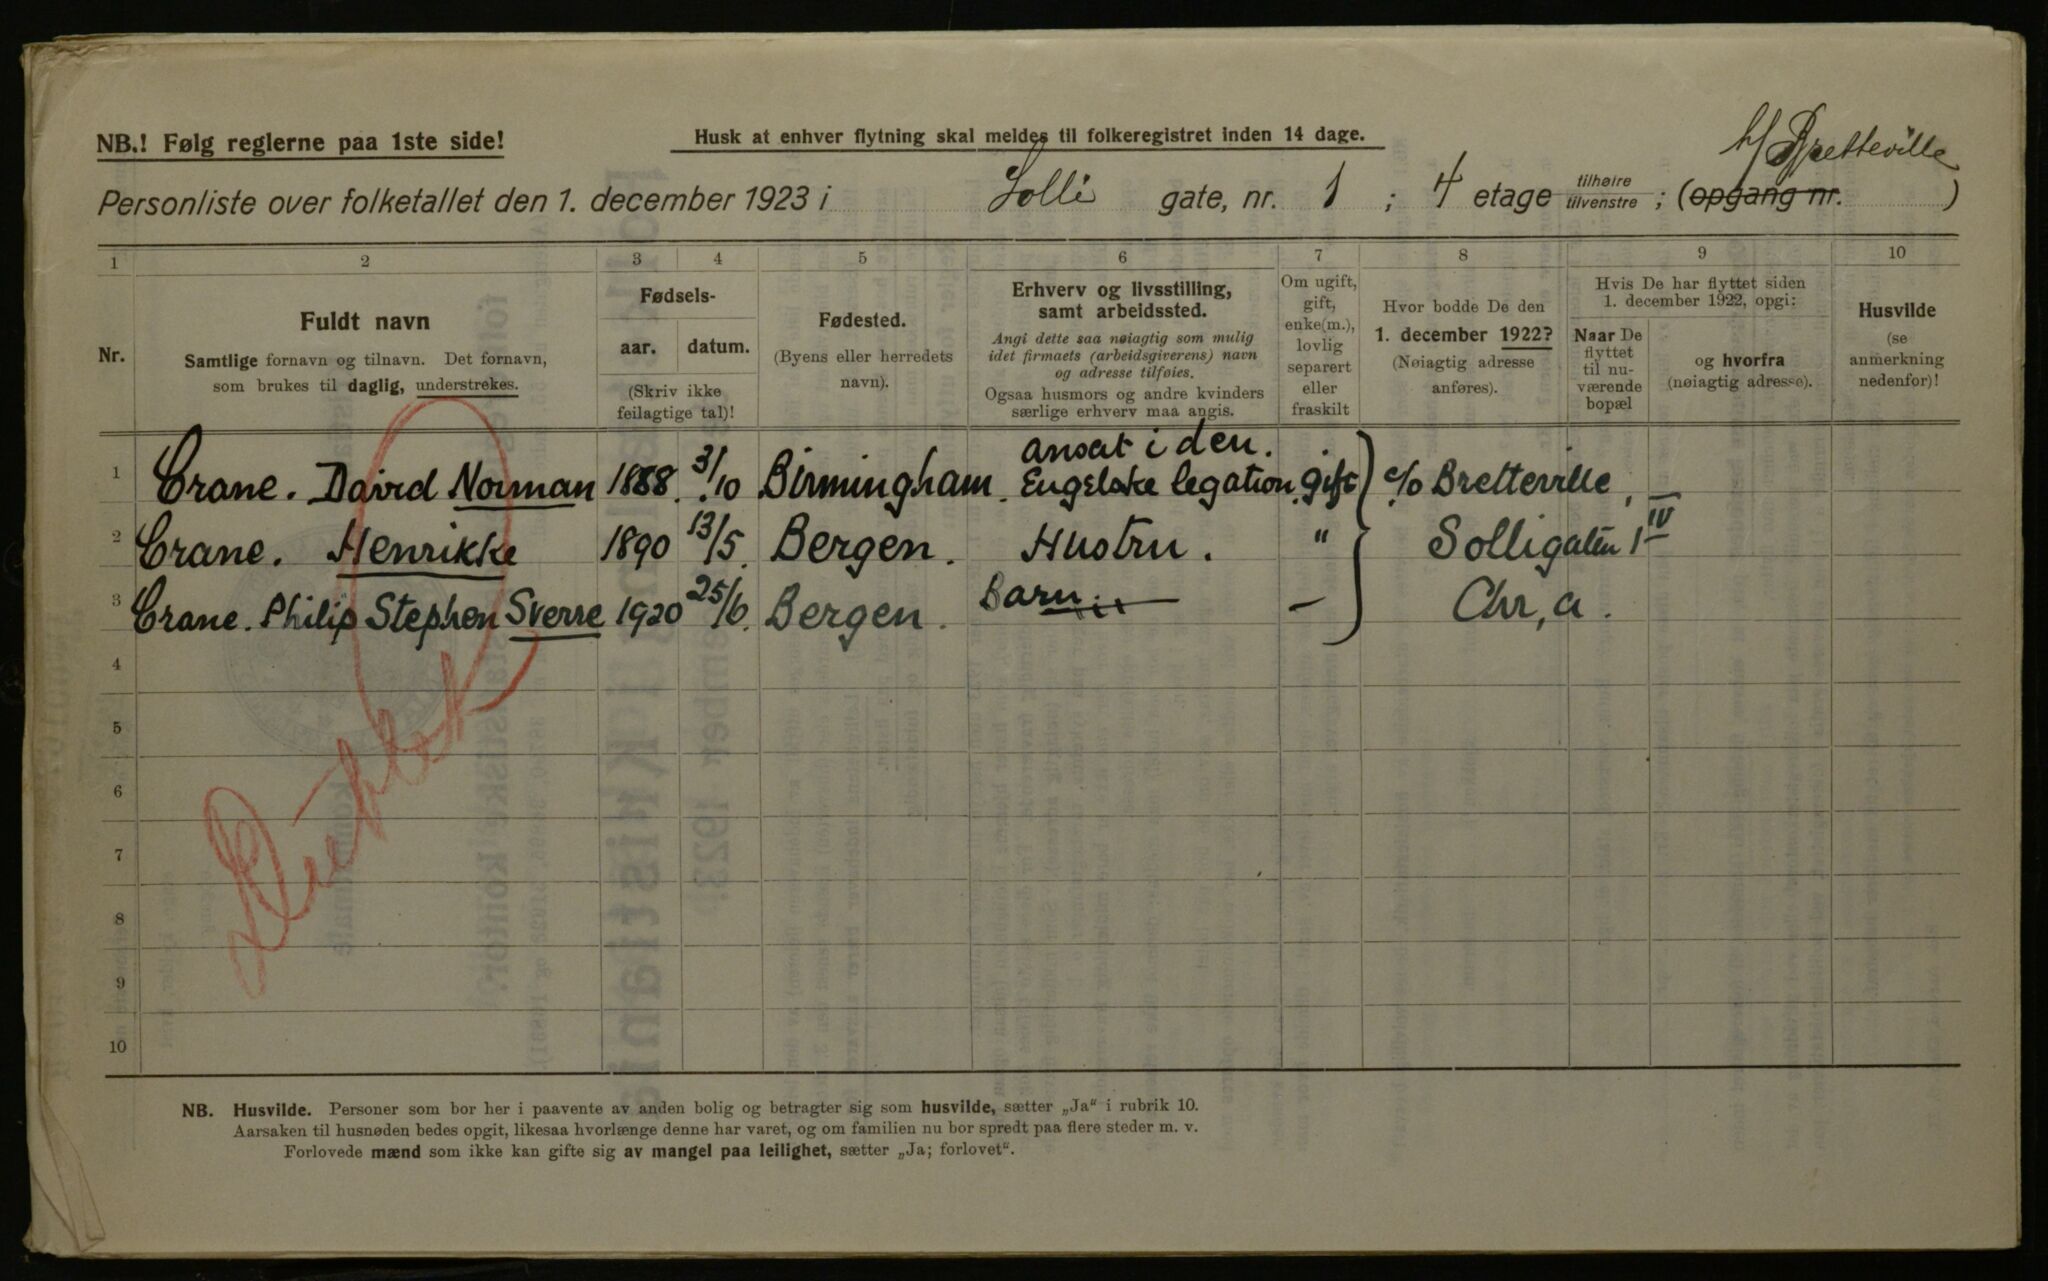 NB.! Følg reglerne paa 1ste side!
Husk at enhver flytning skal meldes til folkeregistret inden 14 dage.
h/ Bretteville
Personliste over folketallet den 1. december 1923 i Solli gate, nr. 1 ; 4 etage tilhøire tilvenstre ; (opgang nr. )
1 2 3 4 5 6 7 8 9 10
Nr.
Fuldt navn
Samtlige fornavn og tilnavn. Det fornavn,
som brukes til daglig, understrekes.
Fødsels-
aar. datum.
(Skriv ikke
feilagtige tal)!
Fødested.
(Byens eller herredets
navn).
Erhverv og livsstilling,
samt arbeidssted.
Angi dette saa nøiagtig som mulig
idet firmaets (arbeidsgiverens) navn
og adresse tilføies.
Ogsaa husmors og andre kvinders
særlige erhverv maa angis.
Om ugift,
gift,
enke(m.),
lovlig
separert
eller
fraskilt
Hvor bodde De den
1. december 1922?
(Nøiagtig adresse
anføres).
Hvis De har flyttet siden
1. december 1922, opgi:
Naar De
flyttet
til nu-
værende
bopæl
og hvorfra
(nøiagtig adresse).
Husvilde
(se
anmerkning
nedenfor)!
1 Crane. David Norman 1888. 3/10 Birmingham. ansat i den. Engelske legation. gift c/o Bretteville,
2 Crane. Henrikke 1890 13/5. Bergen. Hustru. " Solligaten 1 IV
3 Crane. Philip Stephen Sverre 1920 25/6. Bergen. Barn — Chr,a.
4
5
6
7
8
9
10
NB. Husvilde. Personer som bor her i paavente av anden bolig og betragter sig som husvilde, sætter „Ja" i rubrik 10.
Aarsaken til husnøden bedes opgit, likesaa hvorlænge denne har varet, og om familien nu bor spredt paa flere steder m. v.
Forlovede mænd som ikke kan gifte sig av mangel paa leilighet, sætter „Ja; forlovet".